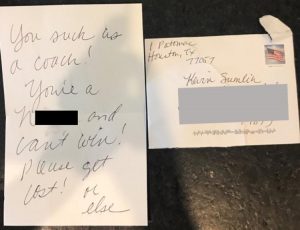 You suck as
a coach!
You're a
N and
can't win!
Please get
lost! or
else
1 Patomac
Houston, TX
77057
Kevin Sumlin